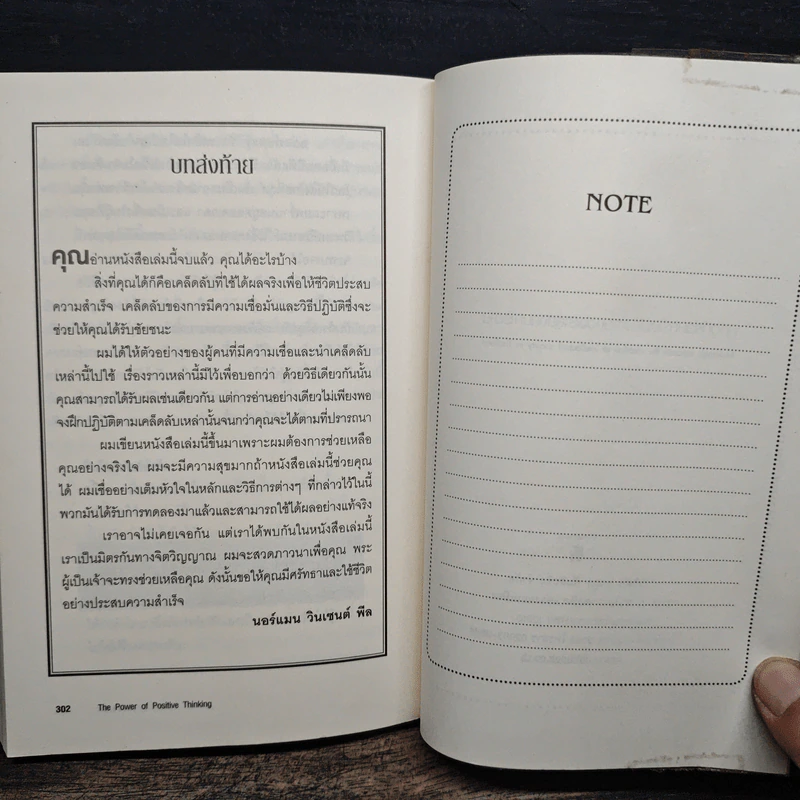 บทส่งท้าย
คุณอ่านหนังสือเล่มนี้จบแล้ว คุณได้อะไรบ้าง
สิ่งที่คุณได้ก็คือเคล็ดลับที่ใช้ได้ผลจริงเพื่อให้ชีวิตประสบ
ความสำเร็จ เคล็ดลับของการมีความเชื่อมั่นและวิธีปฏิบัติซึ่งจะ
ช่วยให้คุณได้รับชัยชนะ
ผมได้ให้ตัวอย่างของผู้คนที่มีความเชื่อและนำเคล็ดลับ
เหล่านี้ไปใช้ เรื่องราวเหล่านี้มีไว้เพื่อบอกว่า ด้วยวิธีเดียวกันนั้น
คุณสามารถได้รับผลเช่นเดียวกัน แต่การอ่านอย่างเดียวไม่เพียงพอ
จงฝึกปฏิบัติตามเคล็ดลับเหล่านั้นจนกว่าคุณจะได้ตามที่ปรารถนา
ผมเขียนหนังสือเล่มนี้ขึ้นมาเพราะผมต้องการช่วยเหลือ
คุณอย่างจริงใจ ผมจะมีความสุขมากถ้าหนังสือเล่มนี้ช่วยคุณ
ได้ ผมเชื่ออย่างเต็มหัวใจในหลักและวิธีการต่างๆ ที่กล่าวไว้ในนี้
พวกมันได้รับการทดลองมาแล้วและสามารถใช้ได้ผลอย่างแท้จริง
เราอาจไม่เคยเจอกัน แต่เราได้พบกันในหนังสือเล่มนี้
เราเป็นมิตรกันทางจิตวิญญาณ ผมจะสวดภาวนาเพื่อคุณ พระ
ผู้เป็นเจ้าจะทรงช่วยเหลือคุณ ดังนั้นขอให้คุณมีศรัทธาและใช้ชีวิต
อย่างประสบความสำเร็จ
นอร์แมน วินเซนต์ พีล
302 The Power of Positive Thinking
NOTE